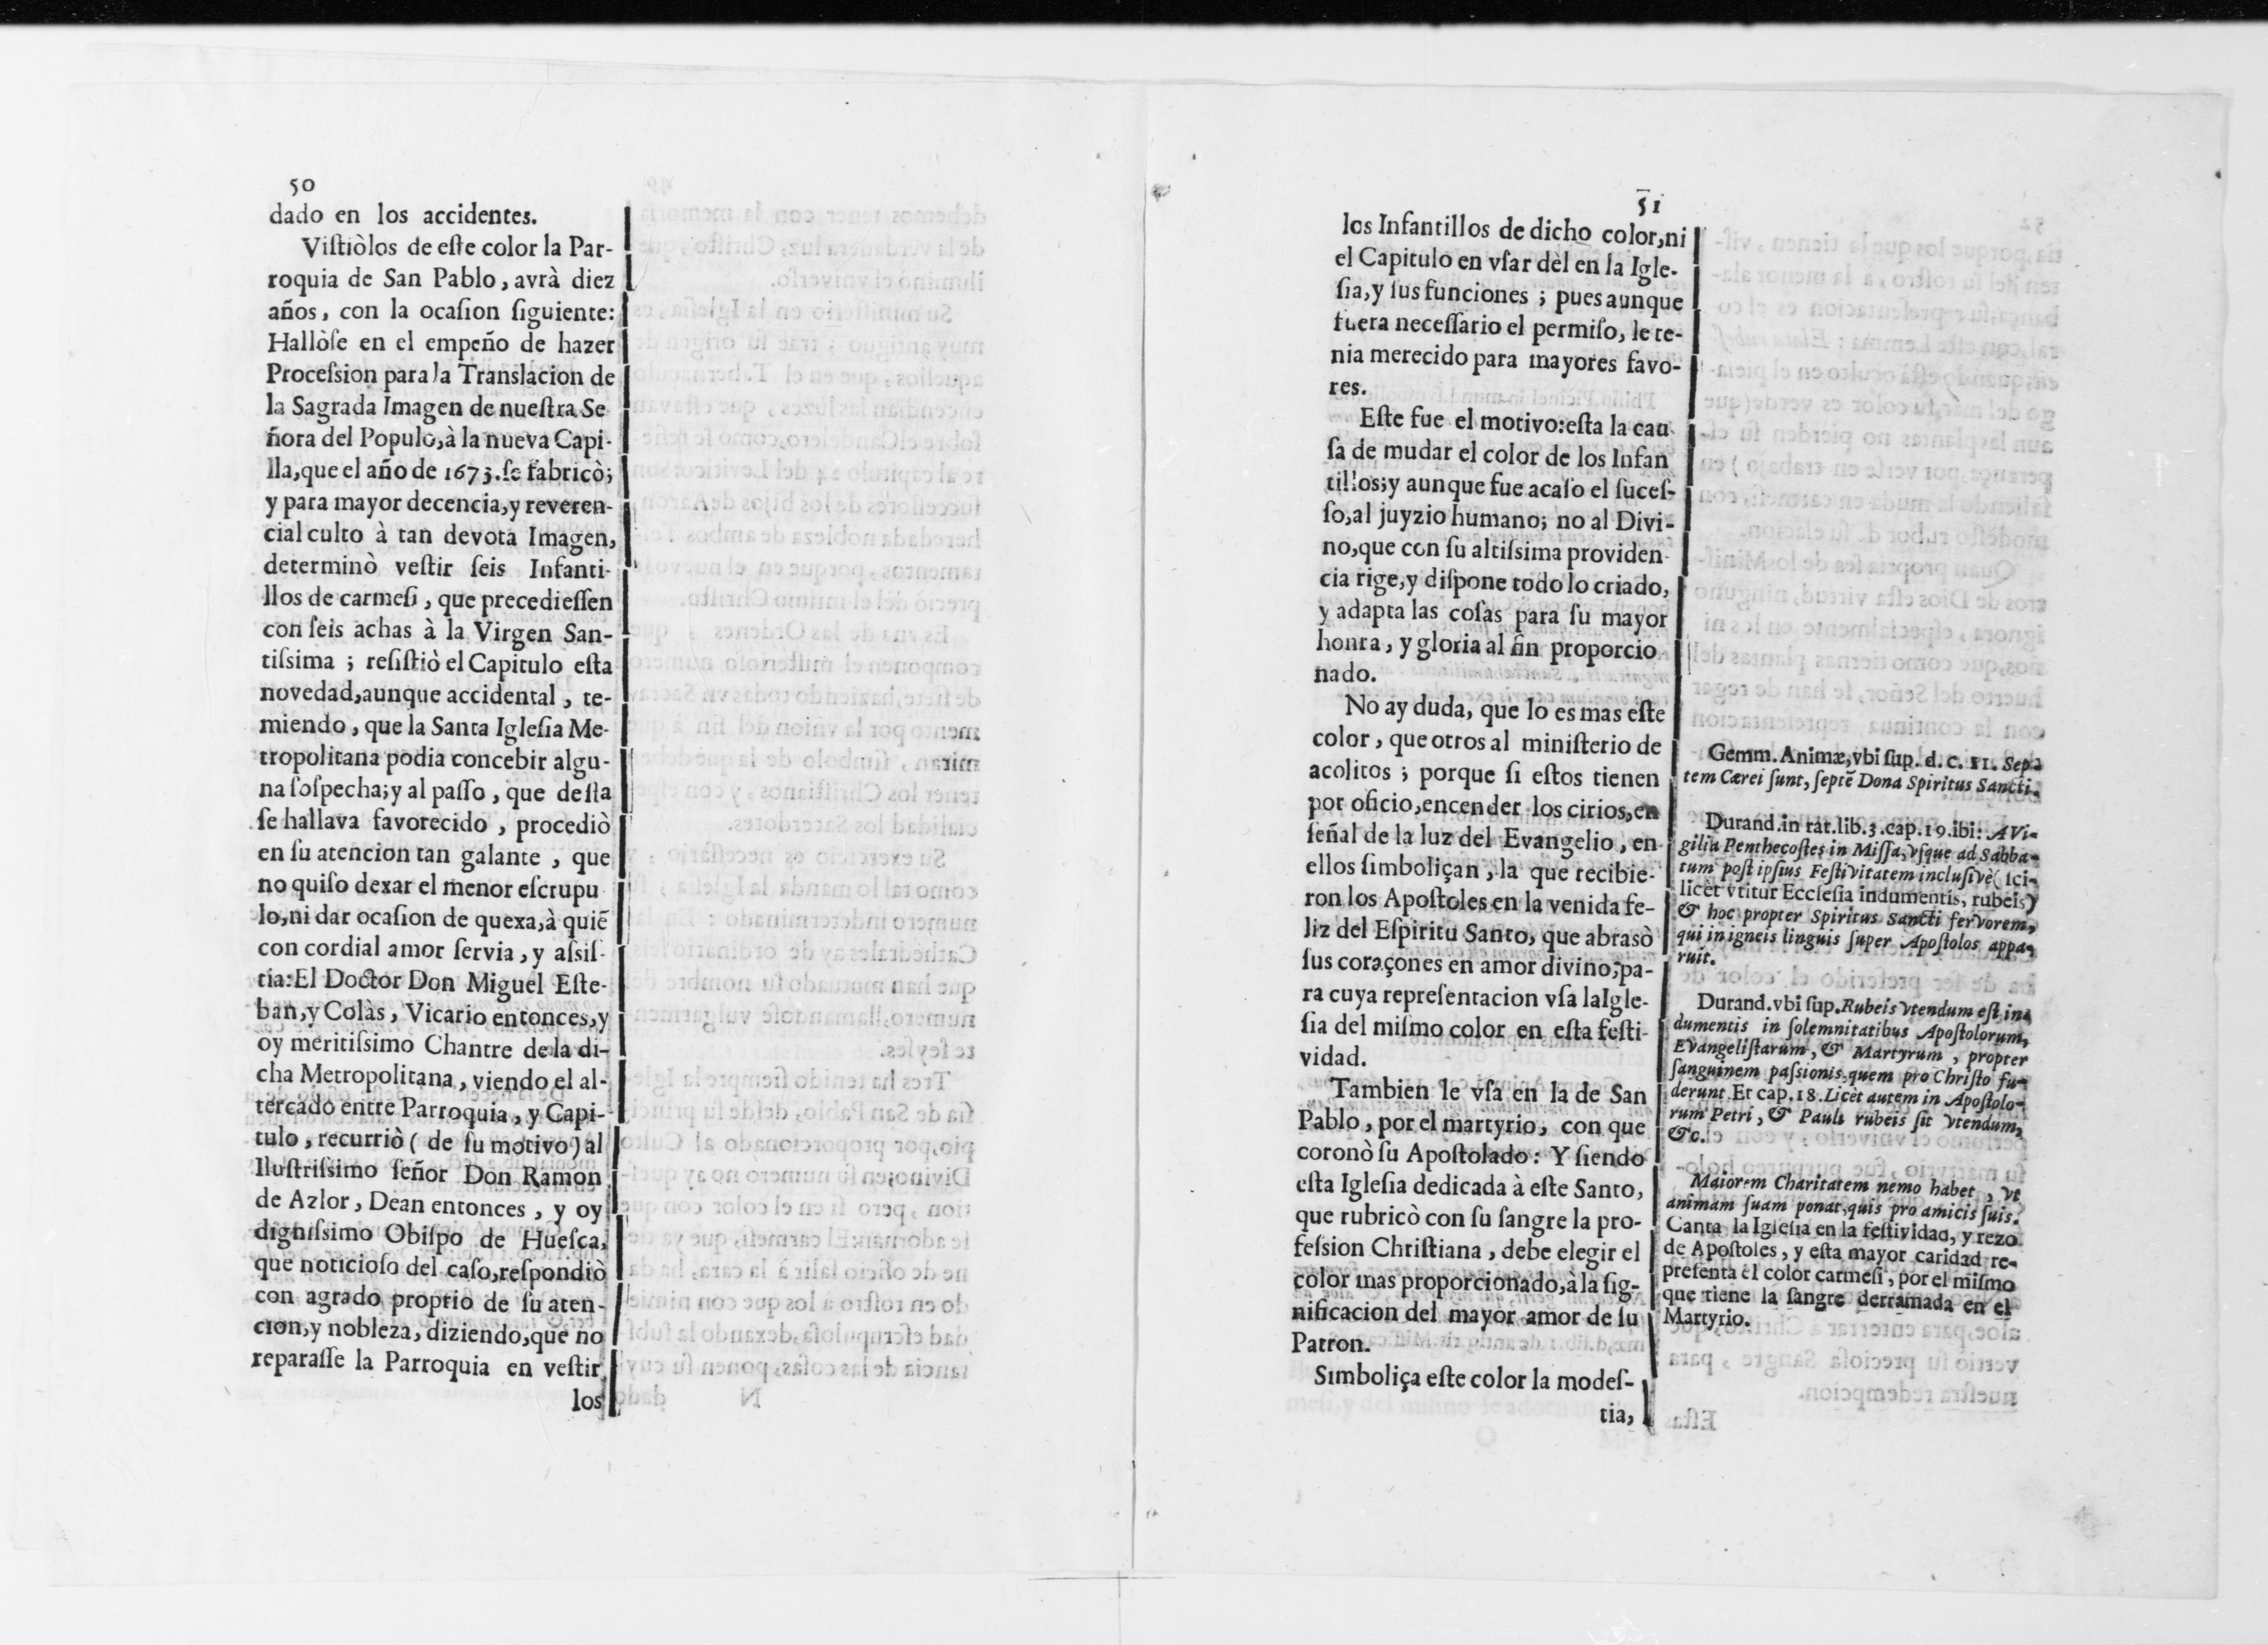 50
dado en los accidentes.
Viſtiòlos de eſte color la Par-
roquia de San Pablo, avrà diez
años, con la ocaſion ſiguiente:
Hallòſe en el empeño de hazer
Proceſsion para la Translacion de
la Sagrada Imagen de nueſtra Se
ñora del Populo, à la nueva Capi-
lla, que el año de 1673. ſe fabricò;
y para mayor decencia, y reveren-
cial culto à tan devota Imagen,
determinò veſtir ſeis Infanti-
llos de carmeſi, que precedieſſen
con ſeis achas à la Virgen San-
tiſsima; reſiſtiò el Capitulo eſta
novedad, aunque accidental, te-
miendo, que la Santa Igleſia Me-
tropolitana podia concebir algu-
na ſoſpecha; y al paſſo, que deſta
ſe hallava favorecido, procediò
en ſu atencion tan galante, que
no quiſo dexar el menor eſcrupu
lo, ni dar ocaſion de quexa, à quiẽ
con cordial amor ſervia, y aſsiſ-
tia: El Doctor Don Miguel Eſte-
ban, y Colàs, Vicario entonces, y
oy meritiſsimo Chantre de la di-
cha Metropolitana, viendo el al-
tercado entre Parroquia, y Capi-
tulo, recurriò ( de ſu motivo) al
Iluſtriſsimo ſeñor Don Ramon
de Azlor, Dean entonces, y oy
digniſsimo Obiſpo de Hueſca,
que noticioſo del caſo, reſpondiò
con agrado proprio de ſu aten-
cion, y nobleza, diziendo, que no
reparaſſe la Parroquia en veſtir
los
51
los Infantillos de dicho color, ni
el Capitulo en vſar dèl en la Igle-
ſia, y ſus funciones; pues aunque
fuera neceſſario el permiſo, le te-
nia merecido para mayores favo-
res.
Eſte fue el motivo: eſta la cau
ſa de mudar el color de los Infan
tillos; y aunque fue acaſo el ſuceſ-
ſo, al juyzio humano; no al Divi-
no, que con ſu altiſsima providen-
cia rige, y diſpone todo lo criado,
y adapta las coſas para ſu mayor
honra, y gloria al fin proporcio
nado.
No ay duda, que lo es mas eſte
color, que otros al miniſterio de
acolitos; porque ſi eſtos tienen
por oficio, encender los cirios, en
ſeñal de la luz del Evangelio, en
ellos ſimboliçan, la que recibie-
ron los Apoſtoles en la venida fe-
liz del Eſpiritu Santo, que abrasò
ſus coraçones en amor divino; pa-
ra cuya repreſentacion vſa la Igle-
ſia del miſmo color en eſta feſti-
vidad.
Tambien le vſa en la de San
Pablo, por el martyrio, con que
coronò ſu Apoſtolado: Y ſiendo
eſta Igleſia dedicada à eſte Santo,
que rubricò con ſu ſangre la pro-
feſsion Chriſtiana, debe elegir el
color mas proporcionado, à la ſig-
nificacion del mayor amor de ſu
Patron.
Simboliça eſte color la modeſ-
tia,
Gemm. Animæ, vbi ſup. d. c. 11. Sep-
tem Cærei ſunt, ſeptẽ Dona Spiritus Sancti.
Durand. in rat. lib. 3. cap. 19. ibi: A Vi-
gilia Penthecoſtes in Miſſa, vſque ad Sabba-
tum poſt ipſius Feſtivitatem incluſivè ( ſci-
licèt vtitur Eccleſia indumentis, rubeis)
& hoc propter Spiritus Sancti fervorem,
qui in igneis linguis ſuper Apoſtolos appa-
ruit.
Durand. vbi ſup. Rubeis vtendum eſt in-
dumentis in ſolemnitatibus Apoſtolorum,
Evangeliſtarum, & Martyrum, propter
ſanguinem paſsionis, quem pro Chriſto fu-
derunt. Et cap. 18. Licèt autem in Apoſtolo-
rum Petri, & Pauli rubeis ſit vtendum,
&c.
Maiorem Charitatem nemo habet, vt
animam ſuam ponat, quis pro amicis ſuis.
Canta la Igleſia en la feſtividad, y rezo
de Apoſtoles, y eſta mayor caridad re-
preſenta el color carmeſi, por el miſmo
que tiene la ſangre derramada en el
Martyrio.